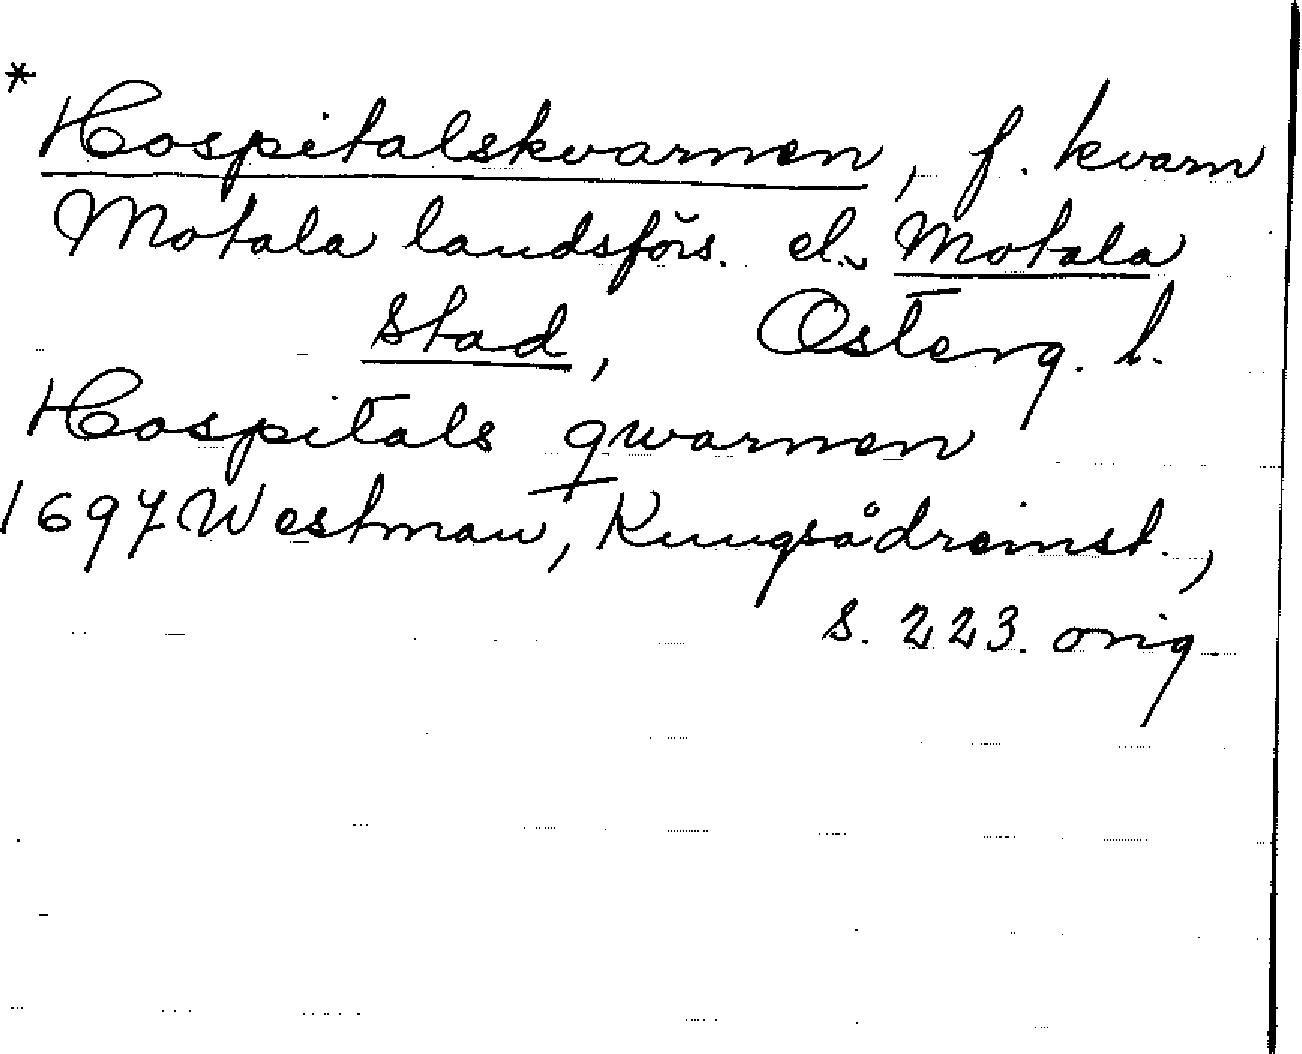 * Hospitalskvarnen, f. kvarn
Motala landsförs. el. Motala
stad, Österg. l.
Hospitals qwarnen
1697 Westman, Kungsådreinst.,
s. 223. orig